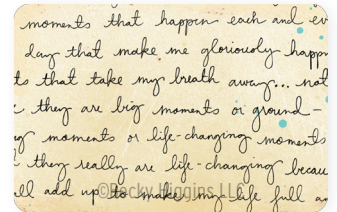 moments that happen each and ev
day that make me gloriously happ
ts that take my breath away... not
they are big moments or ground-
moments or life-changing moments
they really are life-changing becau
ll add up to make my life full an
©Becky Higgins LLC